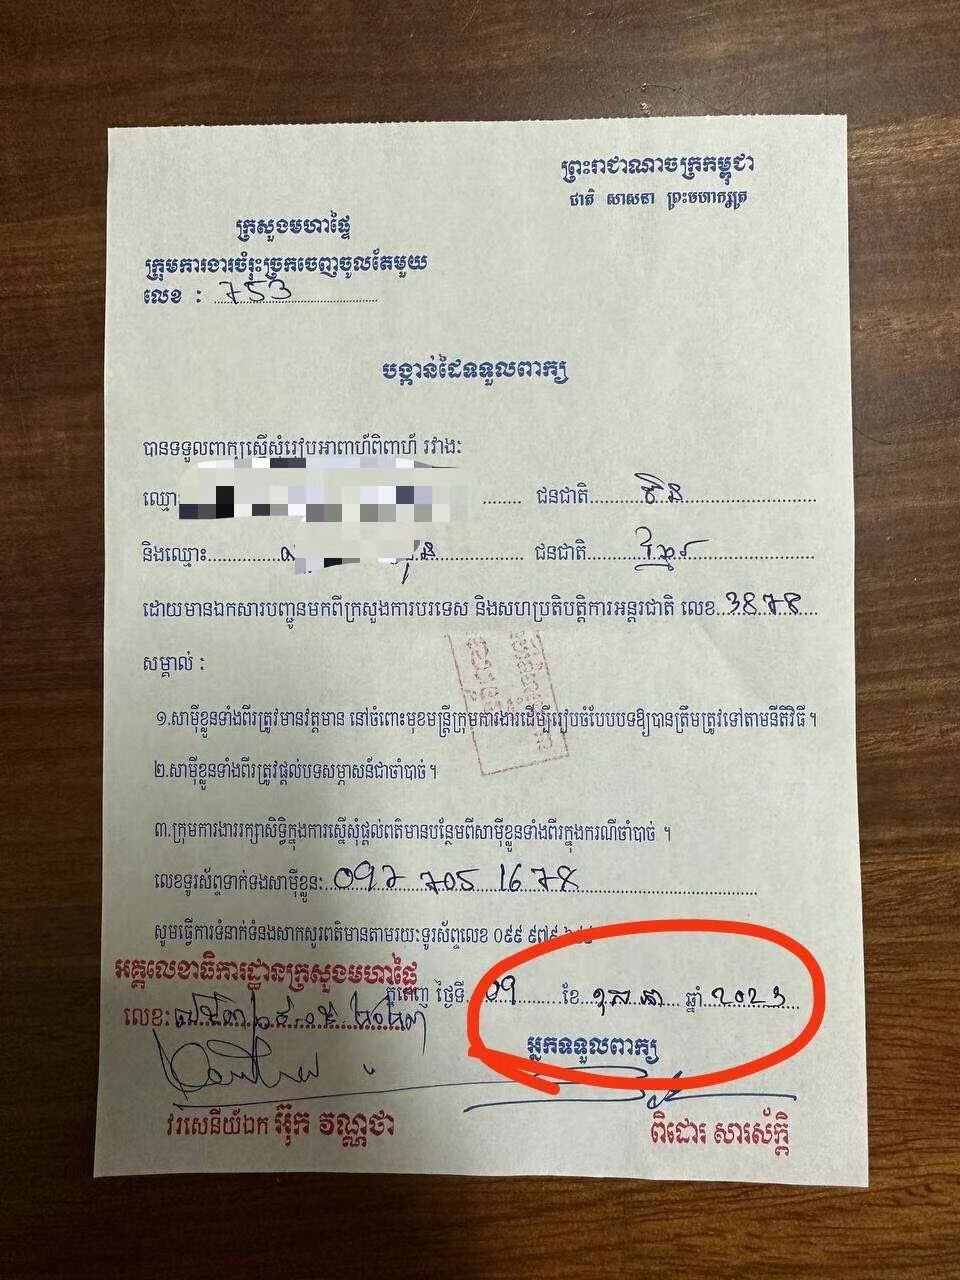 ព្រះរាជាណាចក្រកម្ពុជា
ជាតិ សាសនា ព្រះមហាក្សត្រ
ក្រសួងមហាផ្ទៃ
ក្រុមការងារចំរុះច្រកចេញចូលតែមួយ
លេខ : 753
បង្កាន់ដៃទទួលពាក្យ
បានទទួលពាក្យស្នើសុំរៀបអាពាហ៍ពិពាហ៍ រវាង:
ឈ្មោះ ជនជាតិ ចិន
និងឈ្មោះ ជនជាតិ ខ្មែរ
ដោយមានឯកសារបញ្ជូនមកពីក្រសួងការបរទេស និងសហប្រតិបត្តិការអន្តរជាតិ លេខ 3878
សម្គាល់ :
១.សាមុីខ្លួនទាំងពីរត្រូវមានវត្តមាន នៅចំពោះមុខមន្ត្រីក្រុមការងារដើម្បីរៀបចំបែបបទឱ្យបានត្រឹមត្រូវទៅតាមនីតិវិធី ។
២.សាមុីខ្លួនទាំងពីរត្រូវផ្តល់បទសម្ភាសន៍ជាចាំបាច់ ។
៣.ក្រុមការងាររក្សាសិទ្ធិក្នុងការស្នើសុំផ្តល់ពត៌មានបន្ថែមពីសាមុីខ្លួនទាំងពីរក្នុងករណីចាំបាច់ ។
លេខទូរស័ព្ទទាក់ទងសាមុីខ្លួន: 097 705 1678
សូមធ្វើការទំនាក់ទំនងសាកសួរពត៌មានតាមរយ:ទូរស័ព្ទលេខ ០៩៩ ៩៧៩
អគ្គលេខាធិការដ្ឋានក្រសួងមហាផ្ទៃ
ភ្នំពេញ ថ្ងៃទី 09 ខែ តុលា ឆ្នាំ 2023
លេខ:
អ្នកទទួលពាក្យ
វរសេនីយ៍ឯក អ៊ុក វណ្ណថា
ពិដោរ សារស័ក្តិ